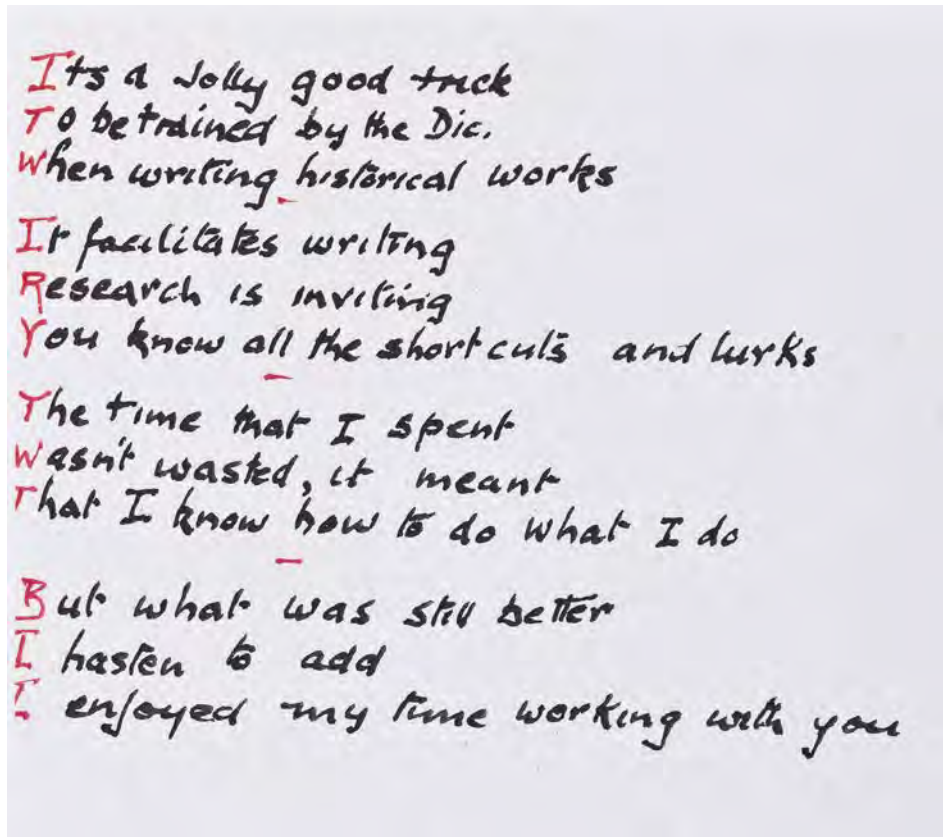 Its a Jolly good trick
To be trained by the Dic.
When writing historical works
It facilitates writing
Research is inviting
You know all the short cuts and lurks
The time that I spent
Wasn't wasted, it meant
That I know how to do what I do
But what was still better
I hasten to add
I enjoyed my time working with you